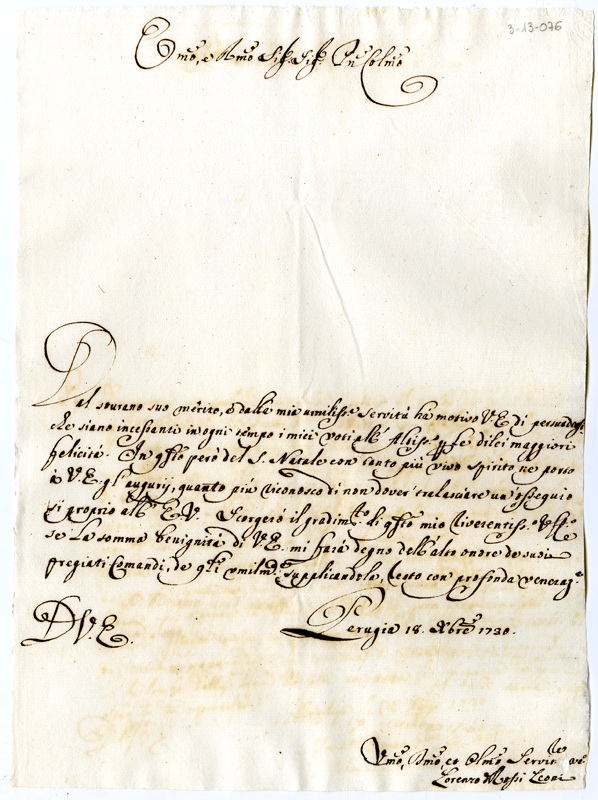 3-13-076
Emo, e Rmo Sig.r Sig.r Pne Colmo
Dal sourano suo mérito, e dalla mia umiliss.a servitù hà motivo V.E. di persuadersi
che siano incessanti in ogni tempo i miei voti all' Altiss.o p le di lei maggiori
felicità. In qsto però del S. Natale con tanto più vivo spirito ne porto
à V.E. gl'augurij, quanto più riconosco di non dover tralasciare un ossequio
si proprio all' E.V. Scorgerò il gradim.to di qsto mio riverentiss.o Uff.o
se la somma benignità di V.E. mi farà degno dell'alto onore de suoi
pregiati Comandi, de q.li umilm.e supplicandola, resto con profonda veneraz.e
D V. E.
Perugia 18. Xbre 1730.
Vmo, Dmo, et Oblmo Servit.re
Lorenzo Rossi Leoni